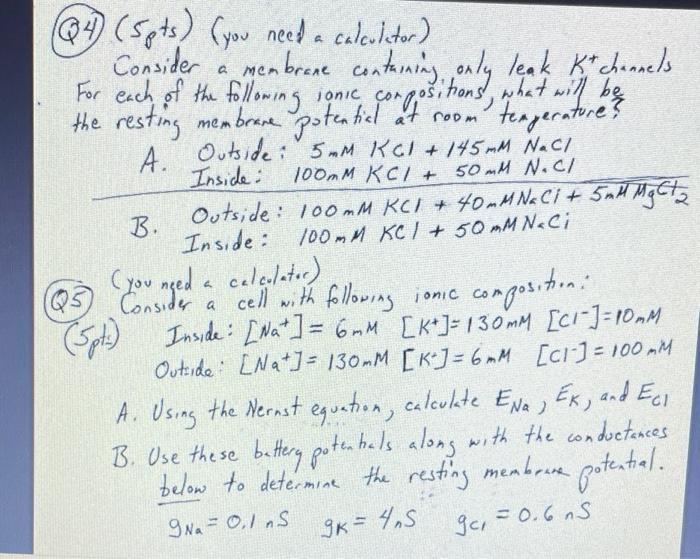 Q4 (5pts) (you need a calculator)
Consider a membrane containing only leak K+ channels
For each of the following ionic compositions, what will be
the resting membrane potential at room temperature?
A. Outside: 5mM KCl + 145mM NaCl
Inside: 100mM KCl + 50mM NaCl
B. Outside: 100mM KCl + 40mM NaCl + 5mM MgCl2
Inside: 100mM KCl + 50mM NaCl
Q5 (you need a calculator)
Consider a cell with following ionic composition:
(5pts) Inside: [Na+] = 6mM [K+] = 130mM [Cl-] = 10mM
Outside: [Na+] = 130mM [K+] = 6mM [Cl-] = 100mM
A. Using the Nernst equation, calculate ENa, EK, and ECl
B. Use these battery potentials along with the conductances
below to determine the resting membrane potential.
gNa = 0.1nS gK = 4nS gCl = 0.6nS